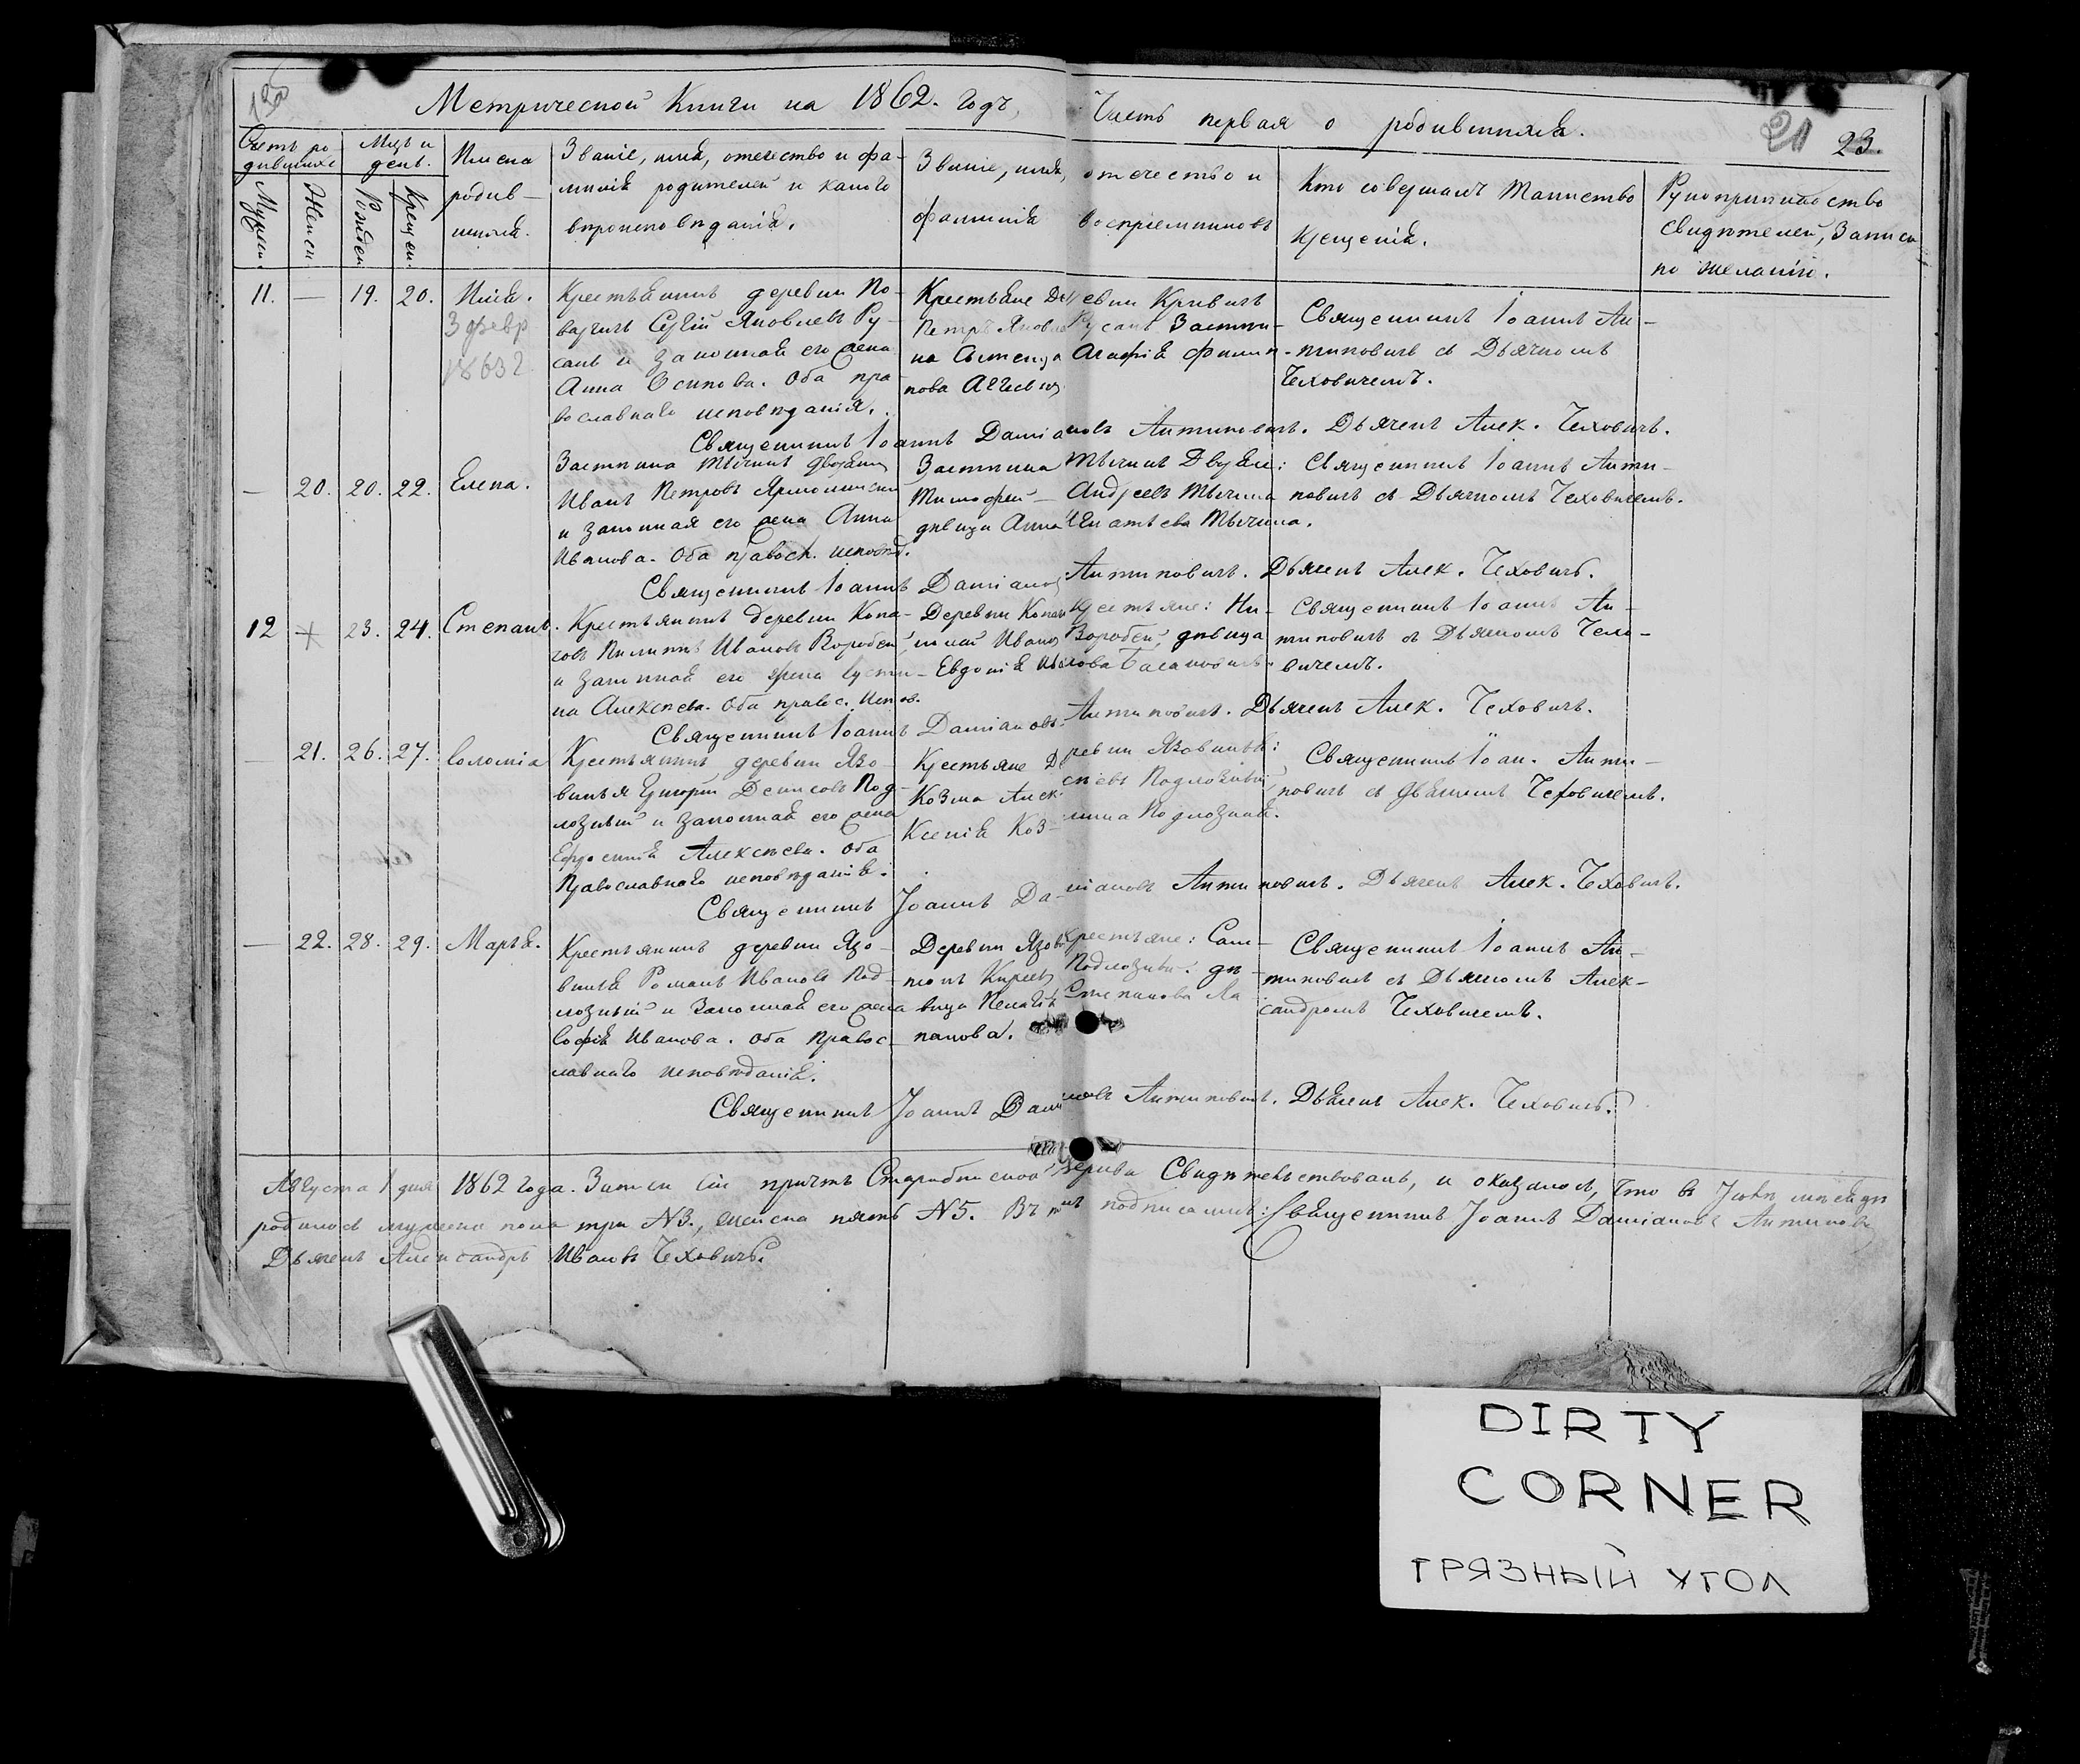 Метрической Книги на 1862. годъ, Часть первая о родившихся.
21 23.
Счетъ ро-
дившихся
Мужеск.
Женск.
Мцъ и
день.
Рожден.
Крещен.
Имена
родив-
шихся.
Званіе, имя, отечество и фа-
милія родителей и какого
вѣроисповѣданія.
Званіе, имя, отечество и
фамилія воспріемниковъ
Кто совершалъ таинство
крещенія.
Рукоприкладство
свидѣтелей, записи
по желанію.
11. — 19. 20. Илія.
3 февр
1863 г.
Крестьянинъ деревни По-
варчичъ Сергій Яковлевъ Ру-
санъ и законная его жена
Анна Осипова. Оба пра-
вославнаго исповѣданія.
Крестьяне деревни Кривичъ
Петръ Яковлевъ Русанъ Застѣн-
ка Агафія Филип-
пова
Священникъ Іоаннъ Ан-
типовичъ съ Дьячкомъ
Чеховичемъ.
Священникъ Іоаннъ Даміановъ Антиповичъ. Дьячекъ Алек. Чеховичъ.
— 20. 20. 22. Елена.
Застѣнка Тычинъ дворянинъ
Иванъ Петровъ Ярмолинскій
и законная его жена Анна
Иванова. Оба правосл. исповѣд.
Застѣнка Тычинъ Дворяне:
Тимофей Андреевъ Тычина
дѣвица Анна Игнатьева Тычина.
Священникъ Іоаннъ Анти-
повичъ съ Дьячкомъ Чеховичемъ.
Священникъ Іоаннъ Даміановъ Антиповичъ. Дьячекъ Алек. Чеховичъ.
12 + 23. 24. Степанъ.
Крестьянинъ деревни Копа-
човъ Пилипъ Ивановъ Воробей
и законная его жена Іусти-
на Алексѣева. Оба правос. Испов.
Деревни Копачи Крестьяне: Ни-
колай Ивановъ Воробей, дѣвица
Евдокія Иванова
Священникъ Іоаннъ Ан-
типовичъ съ Дьячкомъ Чехо-
вичемъ.
Священникъ Іоаннъ Даміановъ Антиповичъ. Дьячекъ Алек. Чеховичъ.
— 21. 26. 27. Соломія
Крестьянинъ деревни Язо-
винья Григорій Денисовъ Под-
лозный и законная его жена
Ефросинія Алексѣева. Оба
Православнаго исповѣданія.
Крестьяне Деревни Язовинья:
Козма Алексѣевъ Подлозный
Ксенія Козмина Подлозная.
Священникъ Іоан. Анти-
повичъ съ Дьячкомъ Чеховичемъ.
Священникъ Іоаннъ Даміановъ Антиповичъ. Дьячекъ Алек. Чеховичъ.
— 22. 28. 29. Марья.
Крестьянинъ деревни Язо-
винья Романъ Ивановъ Под-
лозный и законная его жена
Софія Иванова. Оба Правос-
лавнаго исповѣданія.
Деревни Язовинья Крестьяне: Сам-
сонъ Кирѣевъ Подлозный: дѣ-
вица Пелагія Степанова Ла
панова.
Священникъ Іоаннъ Ан-
типовичъ съ Дьячкомъ Алек-
сандромъ Чеховичемъ.
Священникъ Іоаннъ Даміановъ Антиповичъ. Дьячекъ Алек. Чеховичъ.
Августа 1 дня 1862 года. Записи сіи причтъ Старобинской Церкви Свидѣтельствовалъ, и оказалось, что въ Іюлѣ мѣсяцѣ
родилось мужеска пола три №3., женска пять №5. Въ томъ подписались: Священникъ Іоаннъ Даміановъ Антиповичъ
Дьячекъ Александръ Ивановъ Чеховичъ.
DIRTY
CORNER
ГРЯЗНЫЙ УГОЛ